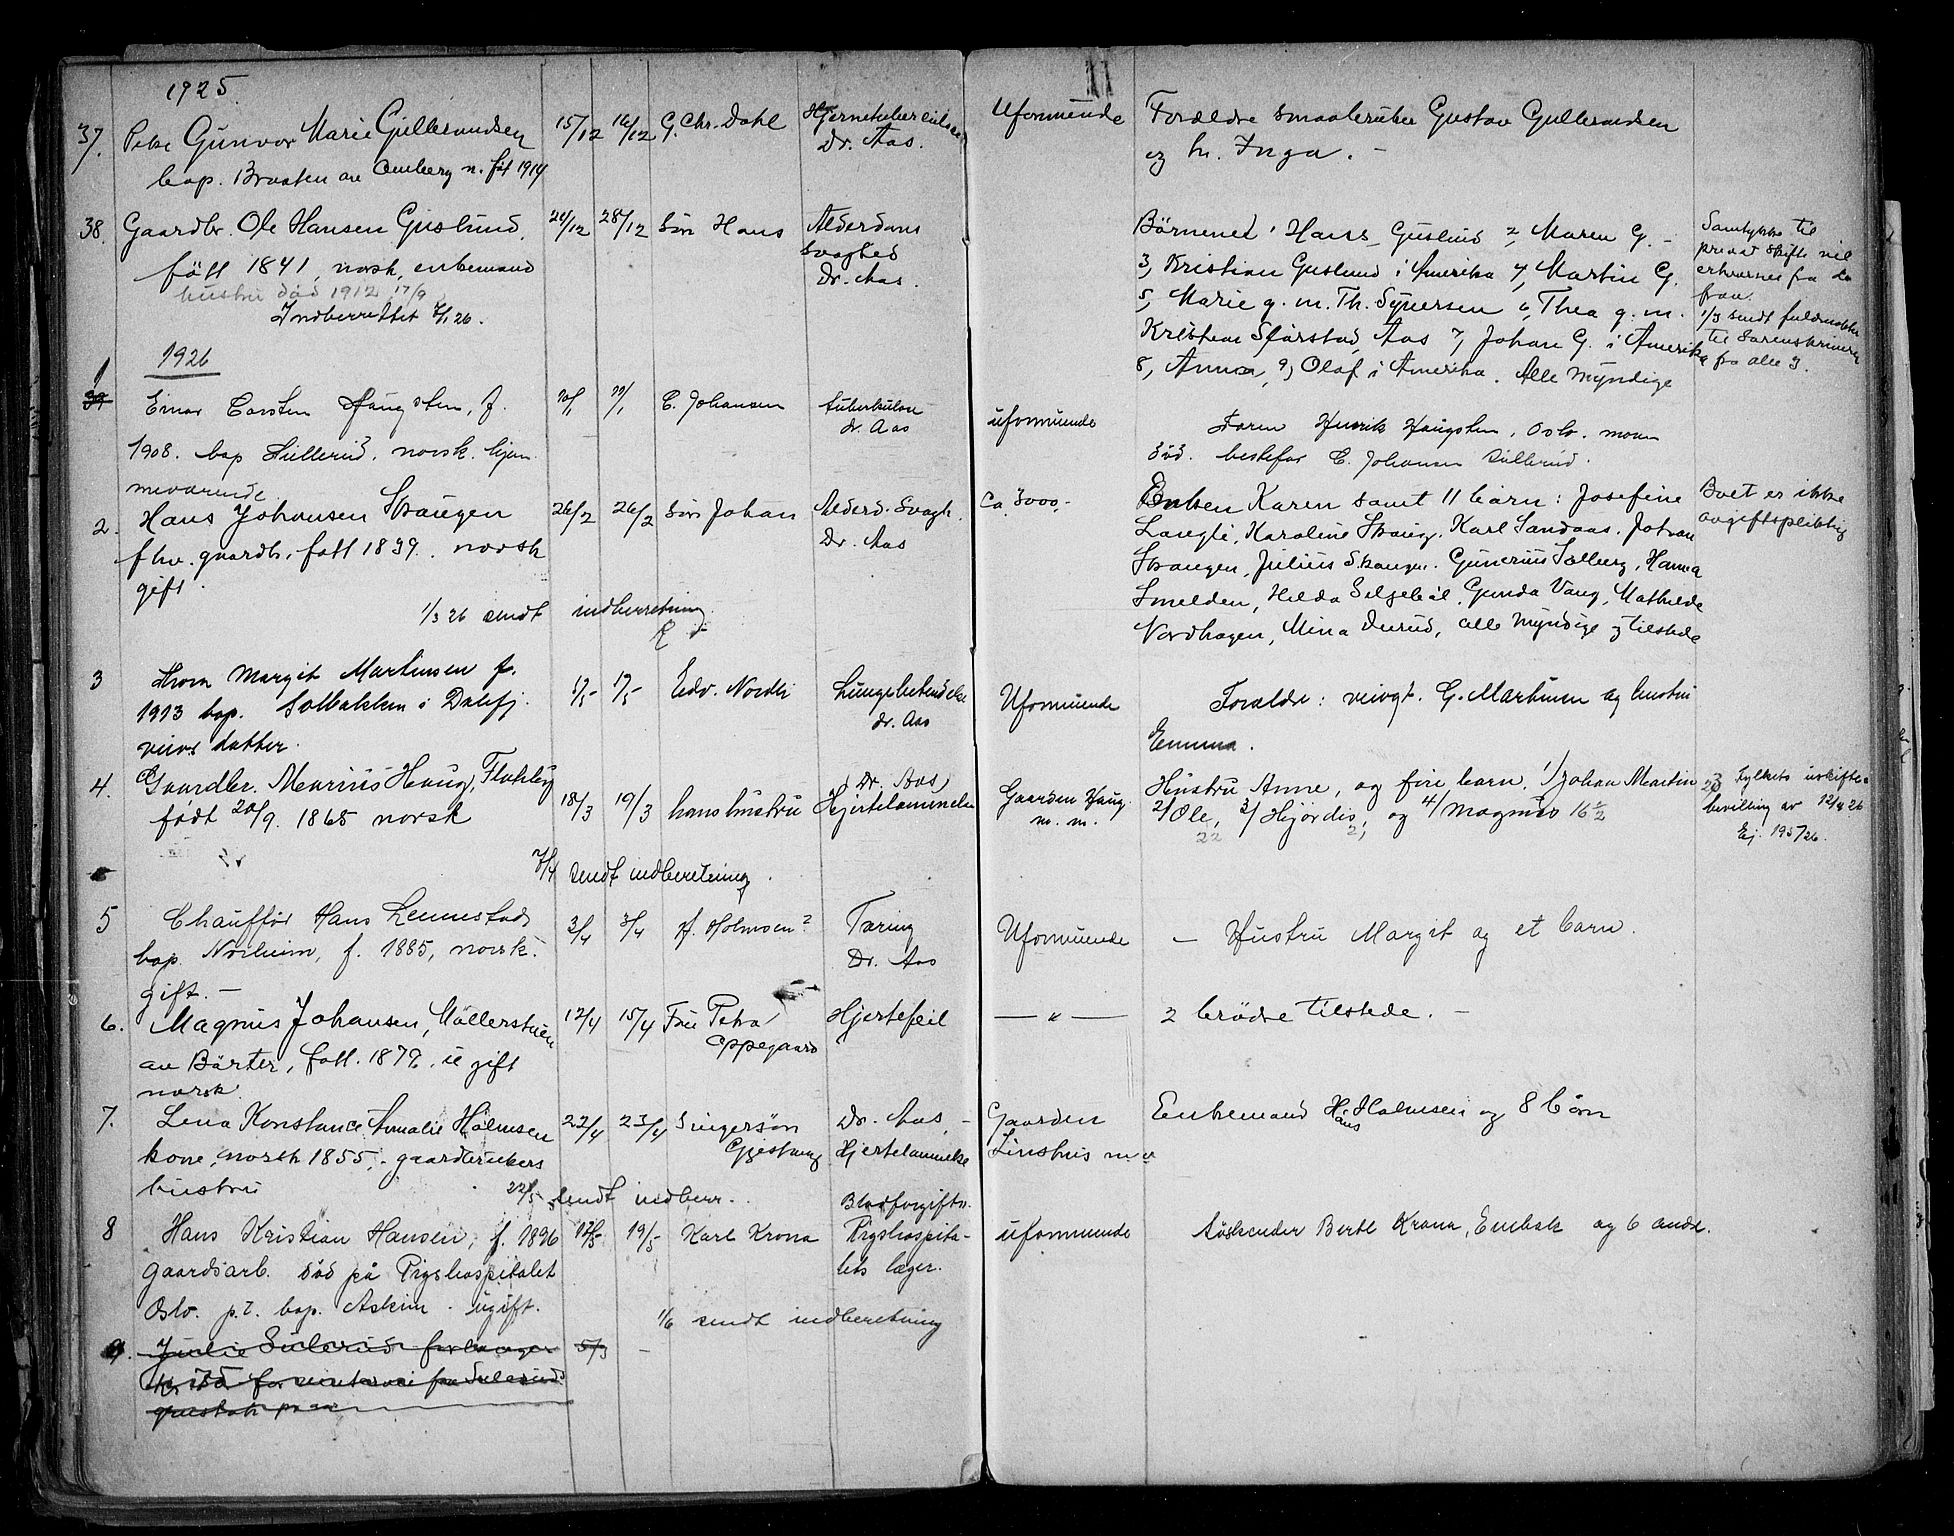 1925
37. Pike Gunvor Marie Gullerundsen 15/12 16/12 G. Chr. Dahl Hjernetuberkulose Uformuende Forældre smaabruker Gustav Gullerudsen
bop. Braaten av Omberg n. føt 1914 Dr. Aas. og h. Inga. -
38. Gaardbr. Ole Hansen Guslund, 24/12 28/12 Sön Hans Alderdoms Börnene 1 Hans Guslund 2, Maren G. - Samtykke til
född 1841, norsk, enkemand svaghed 3, Kristian Guslund i Amerika 4, Martin G. privat skifte vil
hustru död 1912 17/9 Dr. Aas. 5, Marie g. m. Th. Syversen 6, Thea g. m. erhverves fra de
Indberettet 7/1 26. Kristian Sfärstad, Aas 7, Johan G. i Amerika fra
8, Anna, 9, Olaf i Amerika. Alle myndige 1/3 sendt fuldmakter
til Sorenskriveren
fra alle 3.
1926
1 Einar Carsten Haugsten, f. 20/1 20/1 C. Johansen tuberkulose uformuende Faren Henrik Haugsten, Oslo. moren
1908. bop Sullerud. norsk. hjem dr. Aas död. bestefar C. Johansen Sullerud.
meværende
2. Hans Johansen Skaugen 26/2 26/2 Sön Johan Alderd. Svagh. Ca 3000,- Enken Karen samt 11 barn: Josefine Boet er ikke
fhv. gaardb. født 1839. norsk Dr. Aas Langli, Karoline Skaug, Karl Sandaas. Johan avgiftspliktig
gift. Skaugen, Julius Skaugen. Gunerius Solberg, Hanna
1/3 26 sendt indberretning Smelden, Hilda Seljeböl, Gunda Vaug, Mathilde
Nordhagen, Mina Durud, alle myndige og tilstede
3 Thora Margit Martinsen f. 17/5 17/5 Edv. Nordli Lungebetendelse Uformuende Forældre: veivogt. G. Martinsen og hustru
1913 bop. Solbakken i Dalefj. dr. Aas Emma.
veivs datter.
4. Gaardbr. Marius Haug, Flateby 18/3 19/3 hans hustru Dr. Aas, Gaarden Haug Hustru Anne, og fire barn. 1/ Johan Martin 23 Fylkets uskifte-
født 20/9. 1865 norsk Hjertelammelse m. m. 2/ Ole, 3/ Hjördis, og 4/ Magnus 16 1/2 bevilling av 12/4 26
22 Ej. 195/26.
7/4 sendt indberetning.
5 Chauffør Hans Lennestad 3/4 3/4 H. Holmsen? Tæring Uformuende - Hustru Margit og et barn.
bop. Norheim, f. 1885, norsk. Dr. Aas
gift. -
6. Magnus Johansen, Möllerstuen 12/4 15/4 Fru Petra Hjertefeil — " — 2 brödre tilstede. -
av Börter, født. 1879, u gift Oppegaard
norsk
7. Lena Konstance Amalie Holmsen 22/4 23/4 Svigersøn Dr. Aas, - Gaarden Enkemand H. Holmsen og 8 börn
kone, norsk 1855, - gaardbrukers Gjestvang Hjertelammelse Linshus m. v. Hans
hustru 22/5 sendt indberr.
8 Hans Kristian Hansen, f. 1896 12/5 19/5 Karl Krona Blodforgiftn. uformuende Søskender Berte Krona, Enebak og 6 andr.
gaardsarb. död på Rigshospitalet Rigshospita-
Oslo. p.t. bop. Askim. ugift. lets læger.
1/6 sendt indberetning
9. Julie Sulerud forlanger 5/3 -